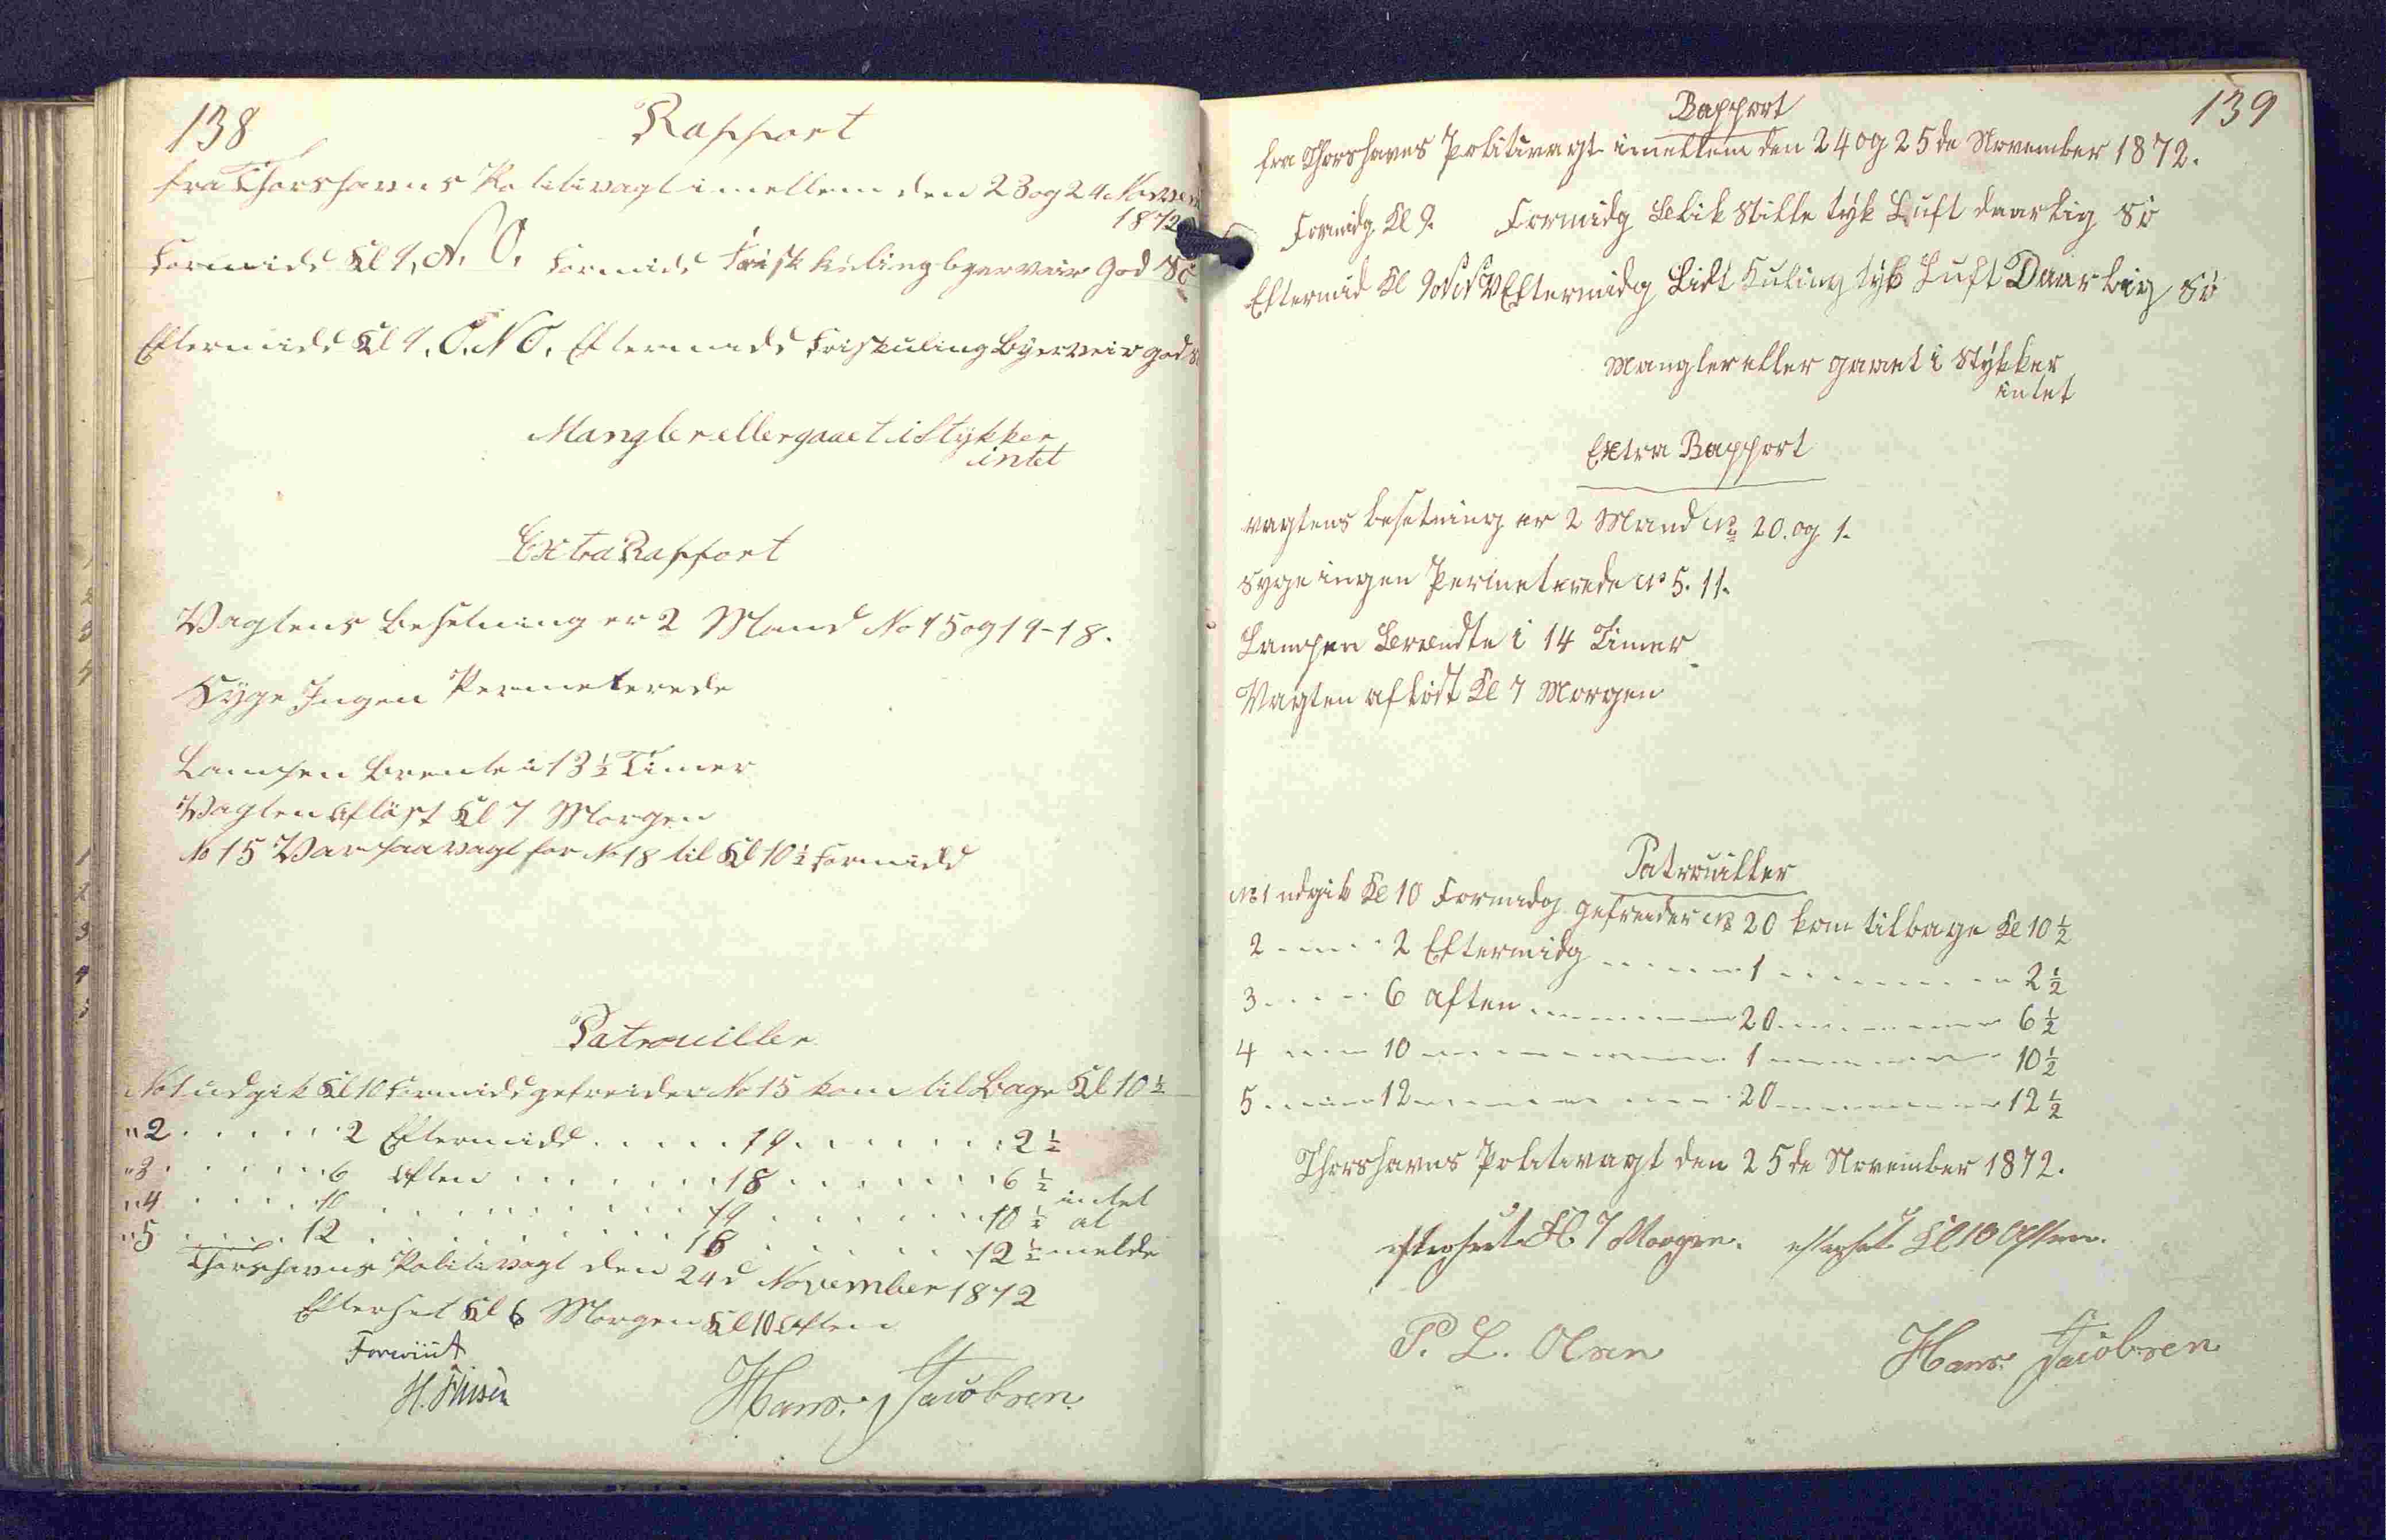 138
Rapport
fra Thorshavns Politivagt imellem den 23 og 24 November
1872
Formidd Kl 9, N. O. Formidd Frisk Kuling bygerveir God Sö
Eftermidd Kl 9, O.N.O. Eftermidd Friskuling Bygerveir god Sö
Mangler eller gaaet i Stykker
intet
Extra Rapport
Vagtens Besetning er 2 Mand No 15 og 19-18.
Syge Ingen Permeterede
Lampen brente i 13 ½ Timer
Vagten Aflöst Kl 7 Morgen
No 15 Var paa vagt for No 18 til Kl 10 ½ Formidd
Patrouiller
No 1 udgik Kl 10 Formidd gefreider No 15 kom tilbage Kl 10 ½
" 2 . . . . . . 2 Eftermidd . . . . . 19 . . . . . . . 2 ½
" 3 . . . . . . 6 Aften . . . . . . . 18 . . . . . . . 6 ½
" 4 . . . . . 10 . . . . . . . . . . 19 . . . . . . . 10 ½
" 5 . . . . . 12 . . . . . . . . . . 18 . . . . . . . 12 ½
intet
at
melde
Thorshavns Politivagt den 24d November 1872
Efterset Kl 6 Morgen Kl 10 Aften
Hans. Jacobsen.
139
Rapport
fra Thorshavns Politivagt imellem den 24 og 25de November 1872.
Formidg Kl 9. Formidg Blik Stille tyk Luft daarlig Sö
Eftermid Kl 9 Eftermidg Lidt Kuling tyk Luft Daarlig Sö
Mangler eller gaaet i Stykker
intet
Extra Rapport
Vagtens besetning er 2 Mand No 20. og 1.
Syge ingen Permeterede No 5. 11.
Lampen Brændte i 14 Timer
Vagten aflöst Kl 7 Morgen
Patrouiller
No 1 udgik Kl 10 Formidg gefreider No 20 kom tilbage Kl 10 ½
2 - - - - 2 Eftermidg - - - - - 1 - - - - - - - 2 ½
3 - - - - 6 Aften - - - - - - 20 - - - - - - - 6 ½
4 - - - - 10 - - - - - - - - 1 - - - - - - - 10 ½
5 - - - - 12 - - - - - - - - 20 - - - - - - - 12 ½
Thorshavns Politivagt den 25de November 1872.
efterseet Kl. 7 Morgen. efterset Kl 10 Aften.
P. L. Olsen
Hans. Jacobsen